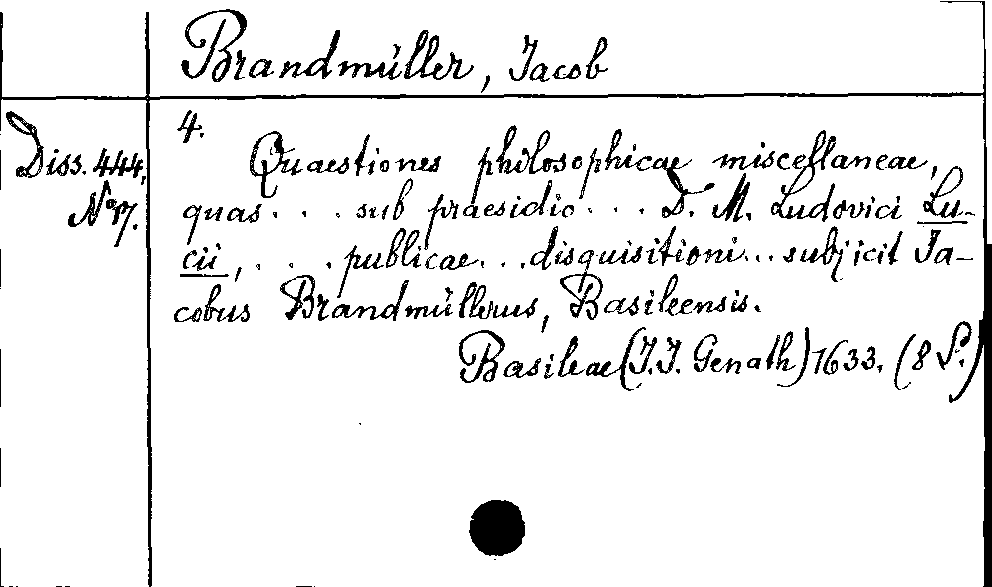 Brandmüller, Jacob
Diss. 444,
No 17.
4.
Quaestiones philosophicae miscellaneae,
quas . . . sub praesidio . . . D. M. Ludovici Lu-
cii, . . . . publicae . . . disquisitioni . . . subjicit Ja-
cobus Brandmüllerus, Basileensis.
Basileae (J. J. Genath) 1633. (8 S.)